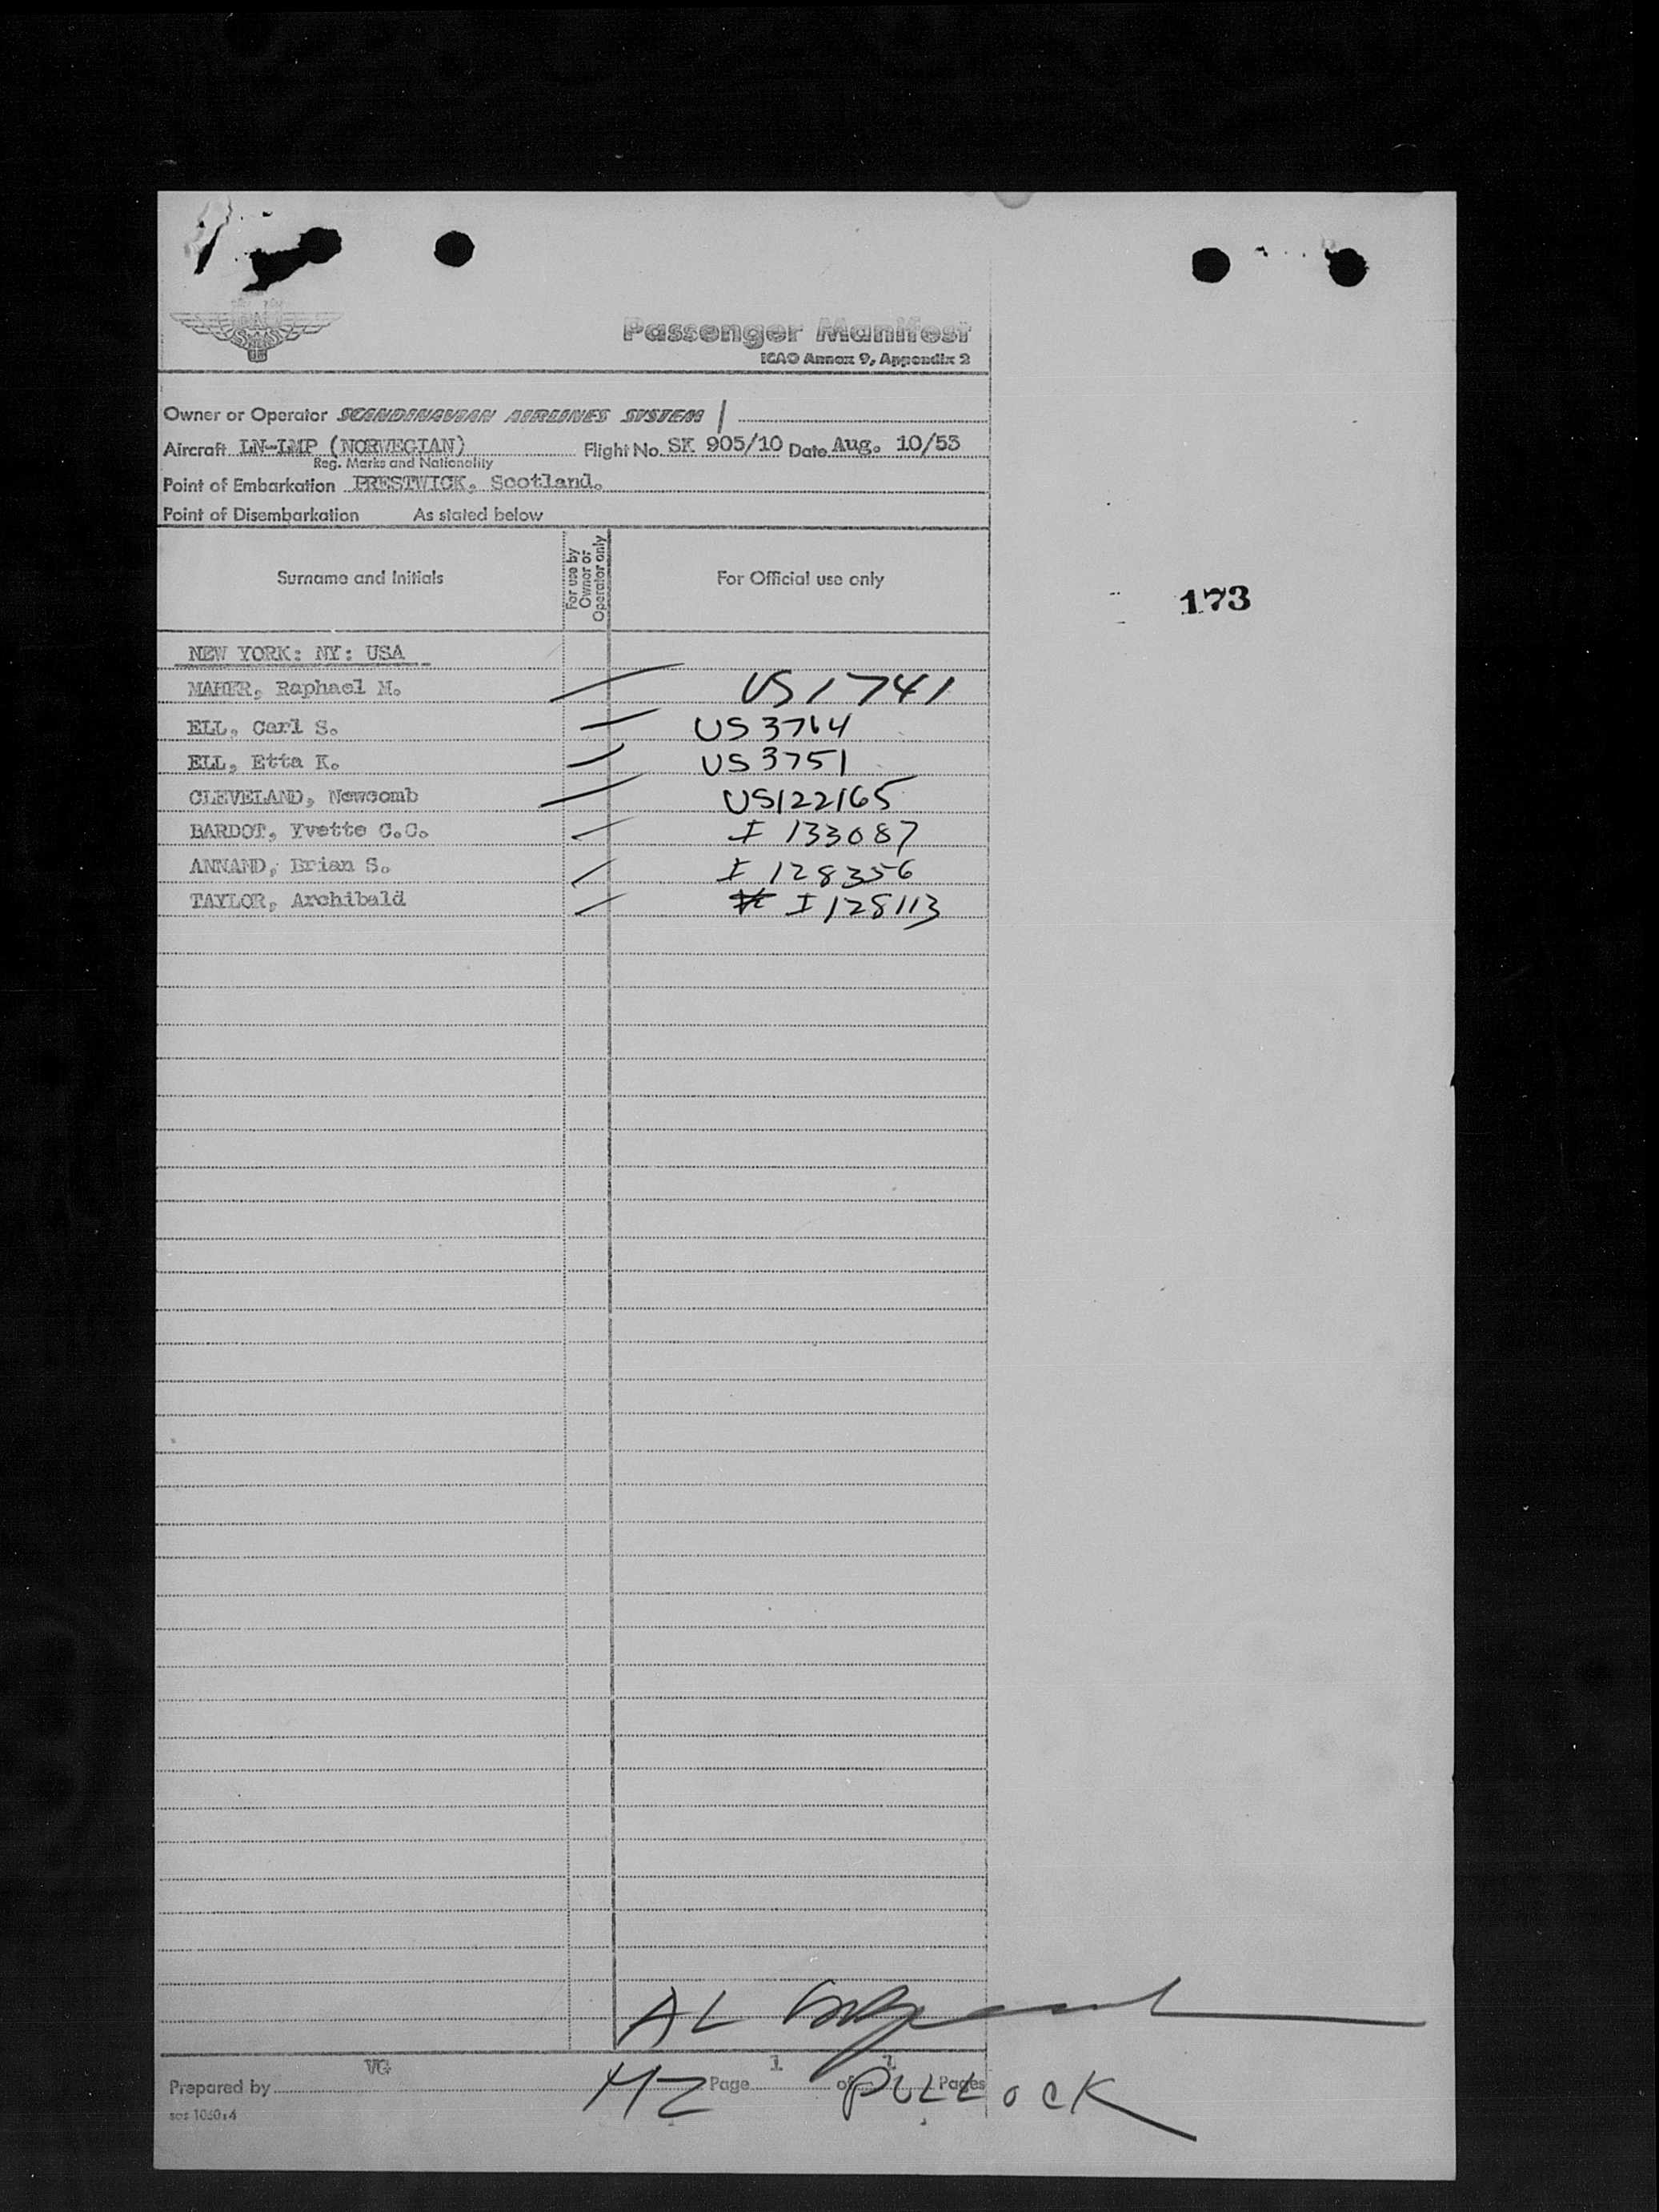 Passenger Manifest
ICAO Annex 9, Appendix 2
Owner or Operator SCANDINAVIAN AIRLINES SYSTEM /
Aircraft LN-LMP (NORWEGIAN) Flight No. SK 905/10 Date Aug. 10/53
Reg. Marks and Nationality
Point of Embarkation PRESTWICK, Scotland.
Point of Disembarkation As stated below
Surname and Initials For use by Owner or Operator only For Official use only
173
NEW YORK: NY: USA
MAHER, Raphael M. US1741
ELL, Carl S. US 3764
ELL, Etta K. US 3751
CLEVELAND, Newcomb US122165
BARDOT, Yvette C.C. I 133087
ANNAND, Brian S. I 128356
TAYLOR, Archibald I 128113
AL
VG 1 1
Prepared by Page of Pages
HZ PULLOCK
sas 1060:4